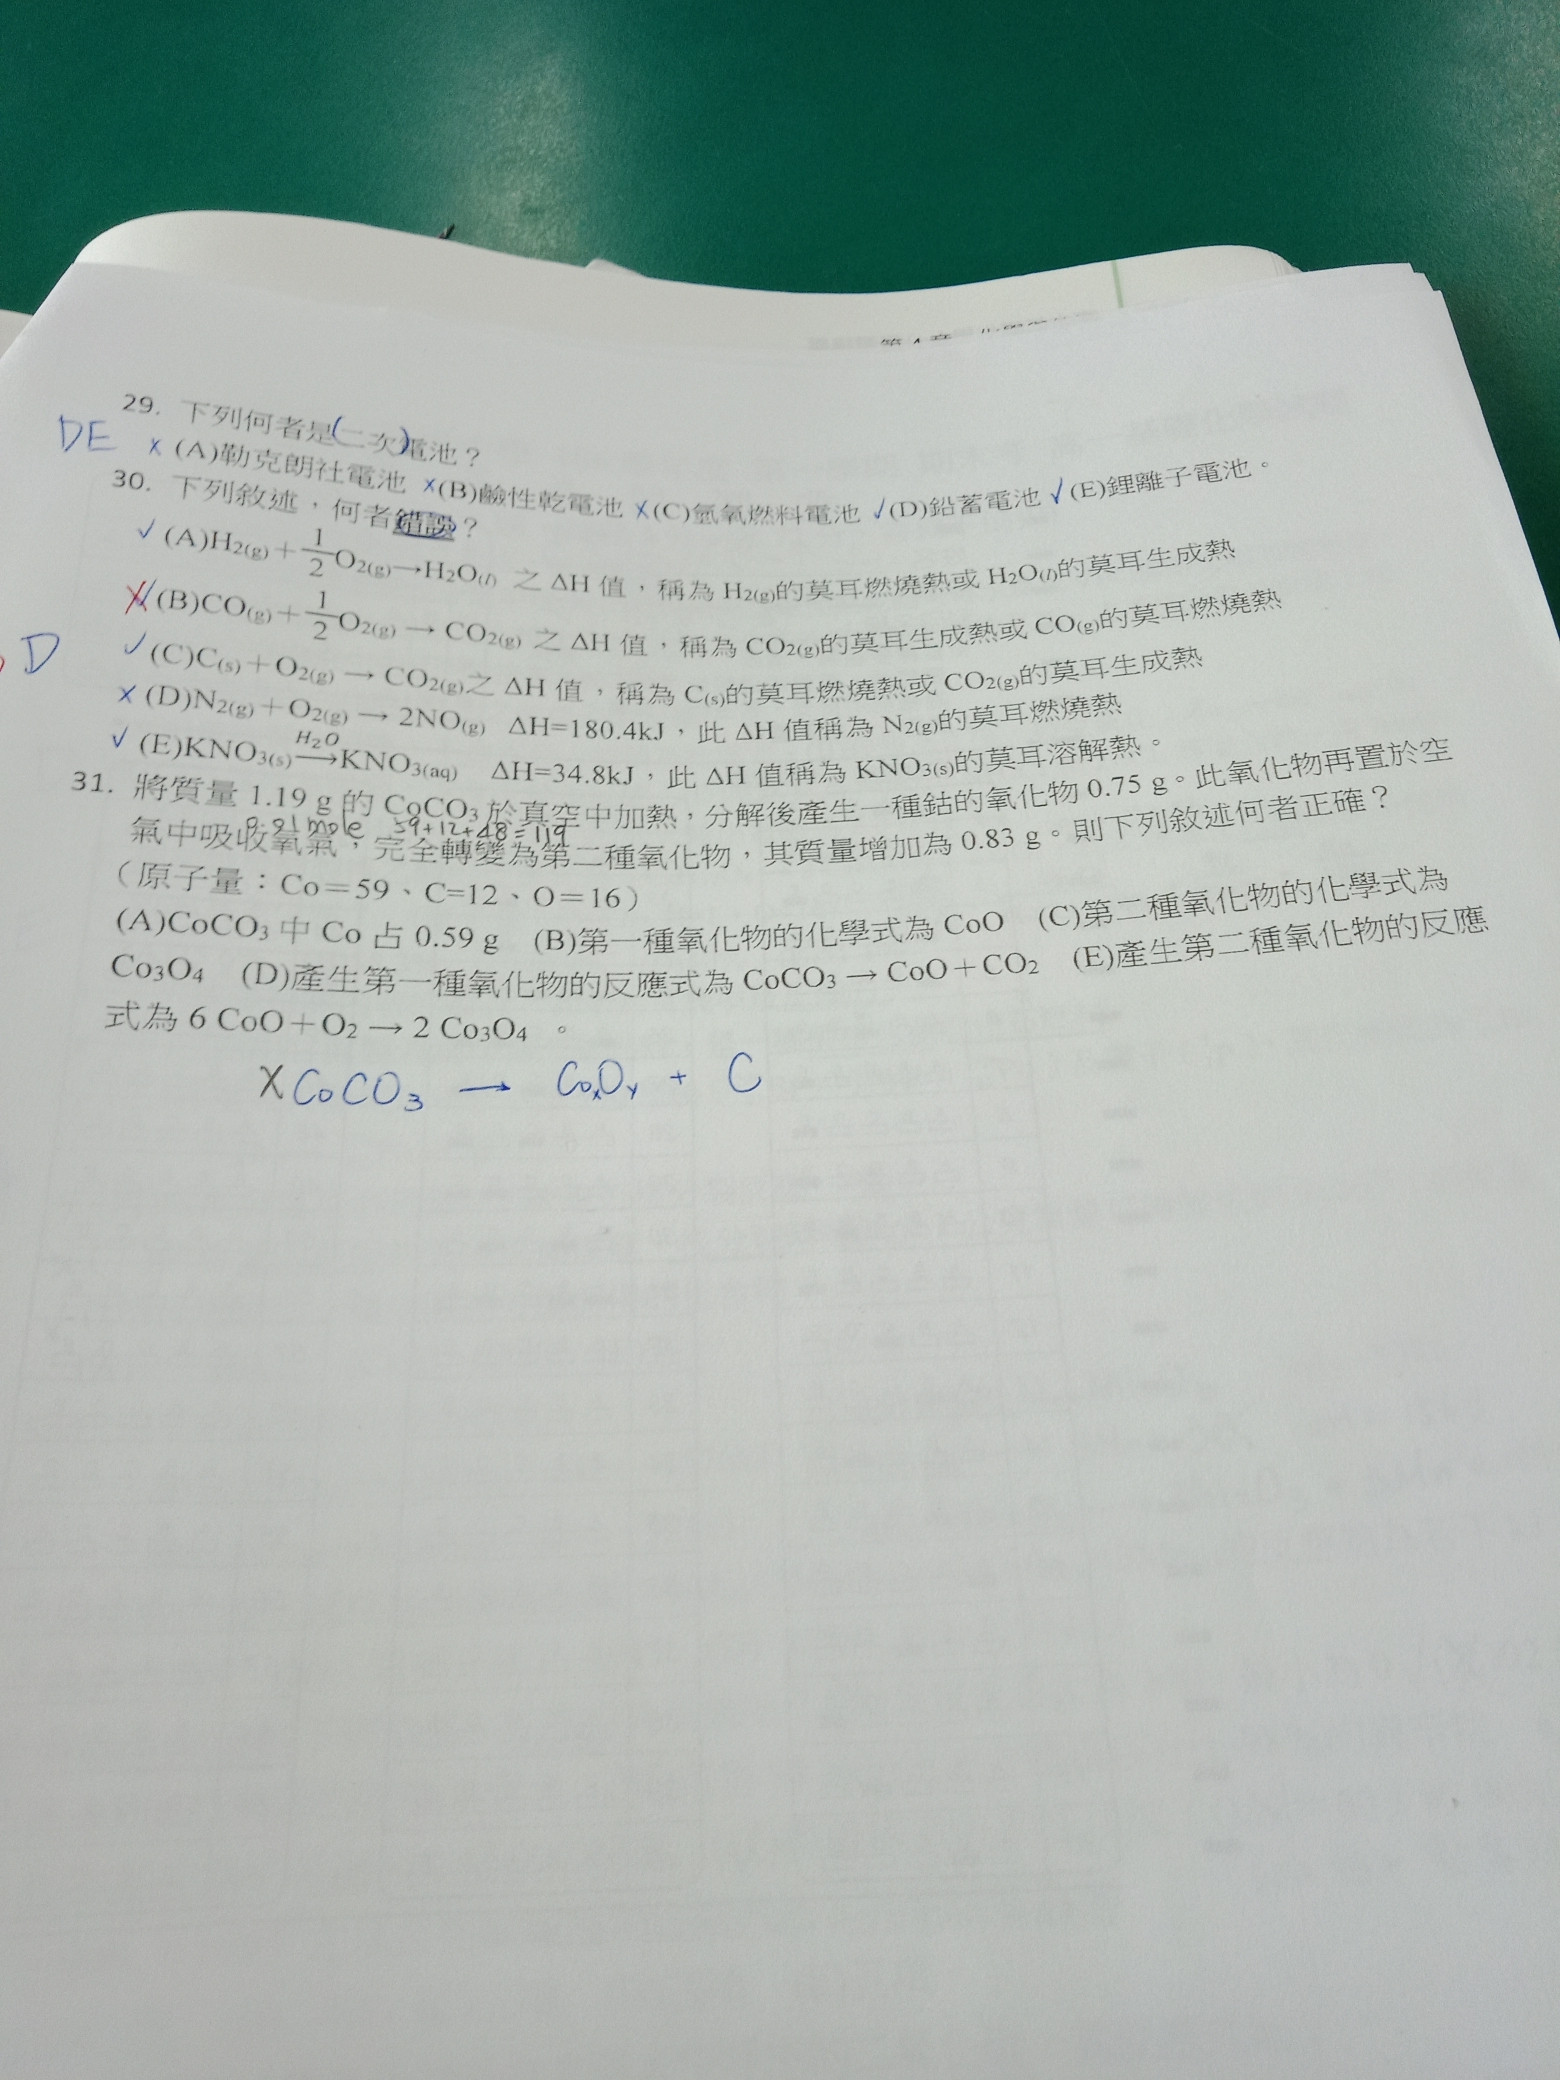 29. 下列何者是(二次)電池？
DE
x (A)勒克朗社電池 x(B)鹼性乾電池 x(C)氫氧燃料電池 ✓(D)鉛蓄電池 ✓(E)鋰離子電池。
30. 下列敘述，何者錯誤？
✓ (A)H₂(g)＋1/2O₂(g)→H₂O(l) 之 ΔH 值，稱為 H₂(g)的莫耳燃燒熱或 H₂O(l)的莫耳生成熱
(B)CO(g)＋1/2O₂(g)→CO₂(g) 之 ΔH 值，稱為 CO₂(g)的莫耳生成熱或 CO(g)的莫耳燃燒熱
D
✓ (C)C(s)＋O₂(g)→CO₂(g)之 ΔH 值，稱為 C(s)的莫耳燃燒熱或 CO₂(g)的莫耳生成熱
x (D)N₂(g)＋O₂(g)→2NO(g) ΔH=180.4kJ，此 ΔH 值稱為 N₂(g)的莫耳燃燒熱
✓ (E)KNO₃(s) H₂O→KNO₃(aq) ΔH=34.8kJ，此 ΔH 值稱為 KNO₃(s)的莫耳溶解熱。
31. 將質量 1.19 g 的 CoCO₃ 於真空中加熱，分解後產生一種鈷的氧化物 0.75 g。此氧化物再置於空
0.01 mole 59+12+48=119
氣中吸收氧氣，完全轉變為第二種氧化物，其質量增加為 0.83 g。則下列敘述何者正確？
（原子量：Co＝59、C=12、O＝16）
(A)CoCO₃ 中 Co 占 0.59 g (B)第一種氧化物的化學式為 CoO (C)第二種氧化物的化學式為
Co₃O₄ (D)產生第一種氧化物的反應式為 CoCO₃→CoO＋CO₂ (E)產生第二種氧化物的反應
式為 6 CoO＋O₂→2 Co₃O₄ 。
X CoCO₃ → CoₓOᵧ + C